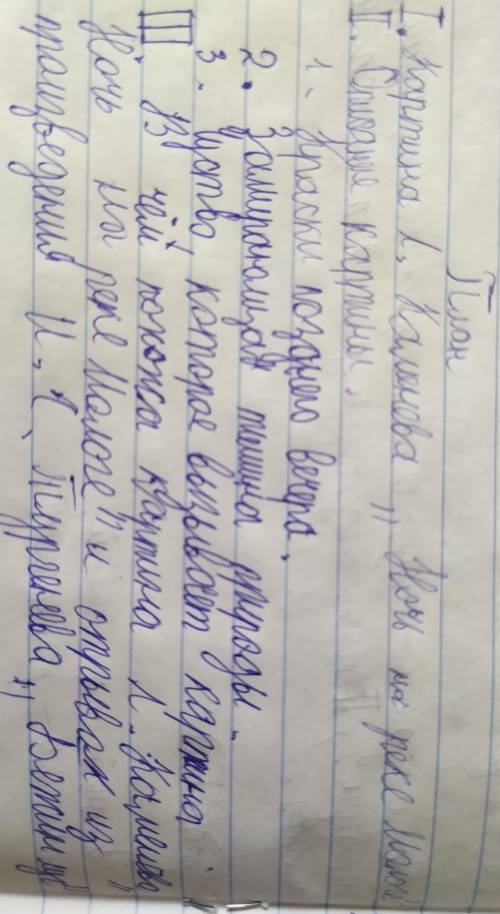 План
I. Картина Л. Каменева „ Ночь на реке
II. Описание картины.
1. Краски позднего вечера.
2. Замирающая тишина природы.
3. которое вызывает картина.
III. В чём похожа картина Л. Каменева „
Ночь на реке Мологе" и отрывок из
произведения И. С. Тургенева „ Бежин луг